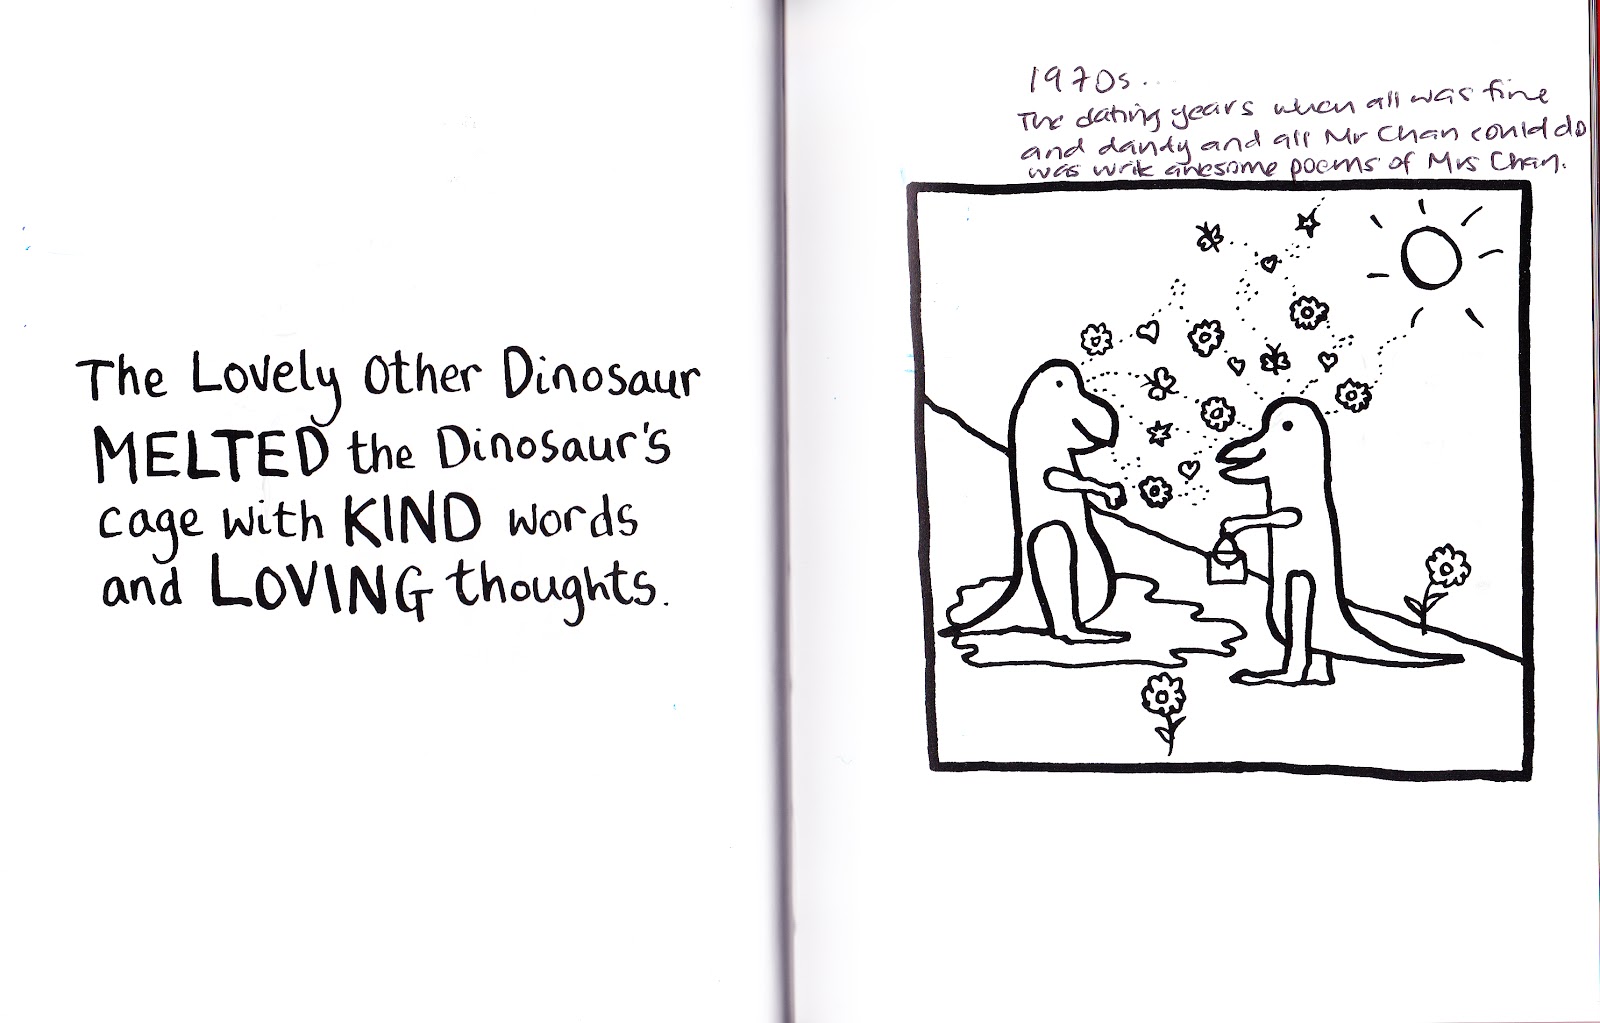 The Lovely Other Dinosaur
MELTED the Dinosaur's
cage with KIND words
and LOVING thoughts.
1970s...
The dating years when all was fine
and dandy and all Mr Chan could do
was write awesome poems of Mrs Chan.